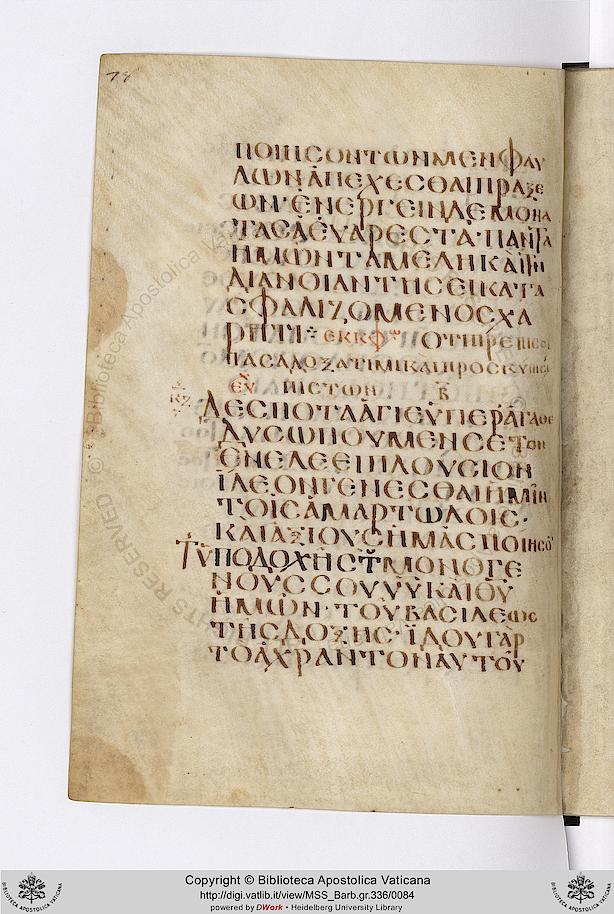 78
ΠΟΙΗΣΟΝ ΤΩΝ ΜΕΝ ΦΑΥ
ΛΩΝ ΑΠΕΧΕΣΘΑΙ ΠΡΑΞΕ
ΩΝ· ΕΝΕΡΓΕΙΝ ΔΕ ΜΟΝΑ
ΤΑ ΣΑ ΕΥΑΡΕΣΤΑ· ΠΑΝΤΑ
ΗΜΩΝ ΤΑ ΜΕΛΗ ΚΑΙ ΤΗΝ
ΔΙΑΝΟΙΑΝ ΤΗ ΣΕΙ ΚΑΤΑ
ΣΦΑΛΙΖΟΜΕΝΟΣ ΧΑ
ΡΗΤΙ ⁘ ΕΚΚΦΩ ΟΤΙ ΠΡΕΠΙ ΣΟΙ
ΠΑΣΑ ΔΟΞΑ ΤΙΜΙ ΚΑΙ ΠΡΟΣΚΥΝΙΣΙ
ΕΥΧ ΠΙΣΤΩΝ Β
ΔΕΣΠΟΤΑ ΑΓΙΕ ΥΠΕΡΑΓΑΘΕ
ΔΥΣΩΠΟΥΜΕΝ ΣΕ ΤΟΝ
ΕΝ ΕΛΕΕΙ ΠΛΟΥΣΙΟΝ
ΙΛΕΟΝ ΓΕΝΕΣΘΑΙ ΗΜΙΝ
ΤΟΙΣ ΑΜΑΡΤΩΛΟΙΣ·
ΚΑΙ ΑΞΙΟΥΣ ΗΜΑΣ ΠΟΙΗΣΟΝ
ΤΥΠΟΔΟΧΗΣ ΤΟΥ ΜΟΝΟΓΕ
ΝΟΥΣ ΣΟΥ ΥΥ ΚΑΙ ΘΥ
ΗΜΩΝ· ΤΟΥ ΒΑΣΙΛΕΩΣ
ΤΗΣ ΔΟΞΗΣ· ΙΔΟΥ ΓΑΡ
ΤΟ ΑΧΡΑΝΤΟΝ ΑΥΤΟΥ
Copyright © Biblioteca Apostolica Vaticana
http://digi.vatlib.it/view/MSS_Barb.gr.336/0084
powered by DWork • Heidelberg University Library